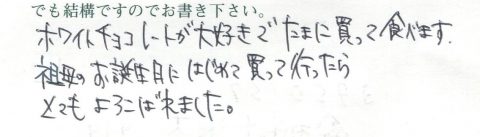 でも結構ですのでお書き下さい。
ホワイトチョコレートが大好きでたまに買って食べます.
祖母のお誕生日にはじめて買って行ったら
とてもよろこばれました。